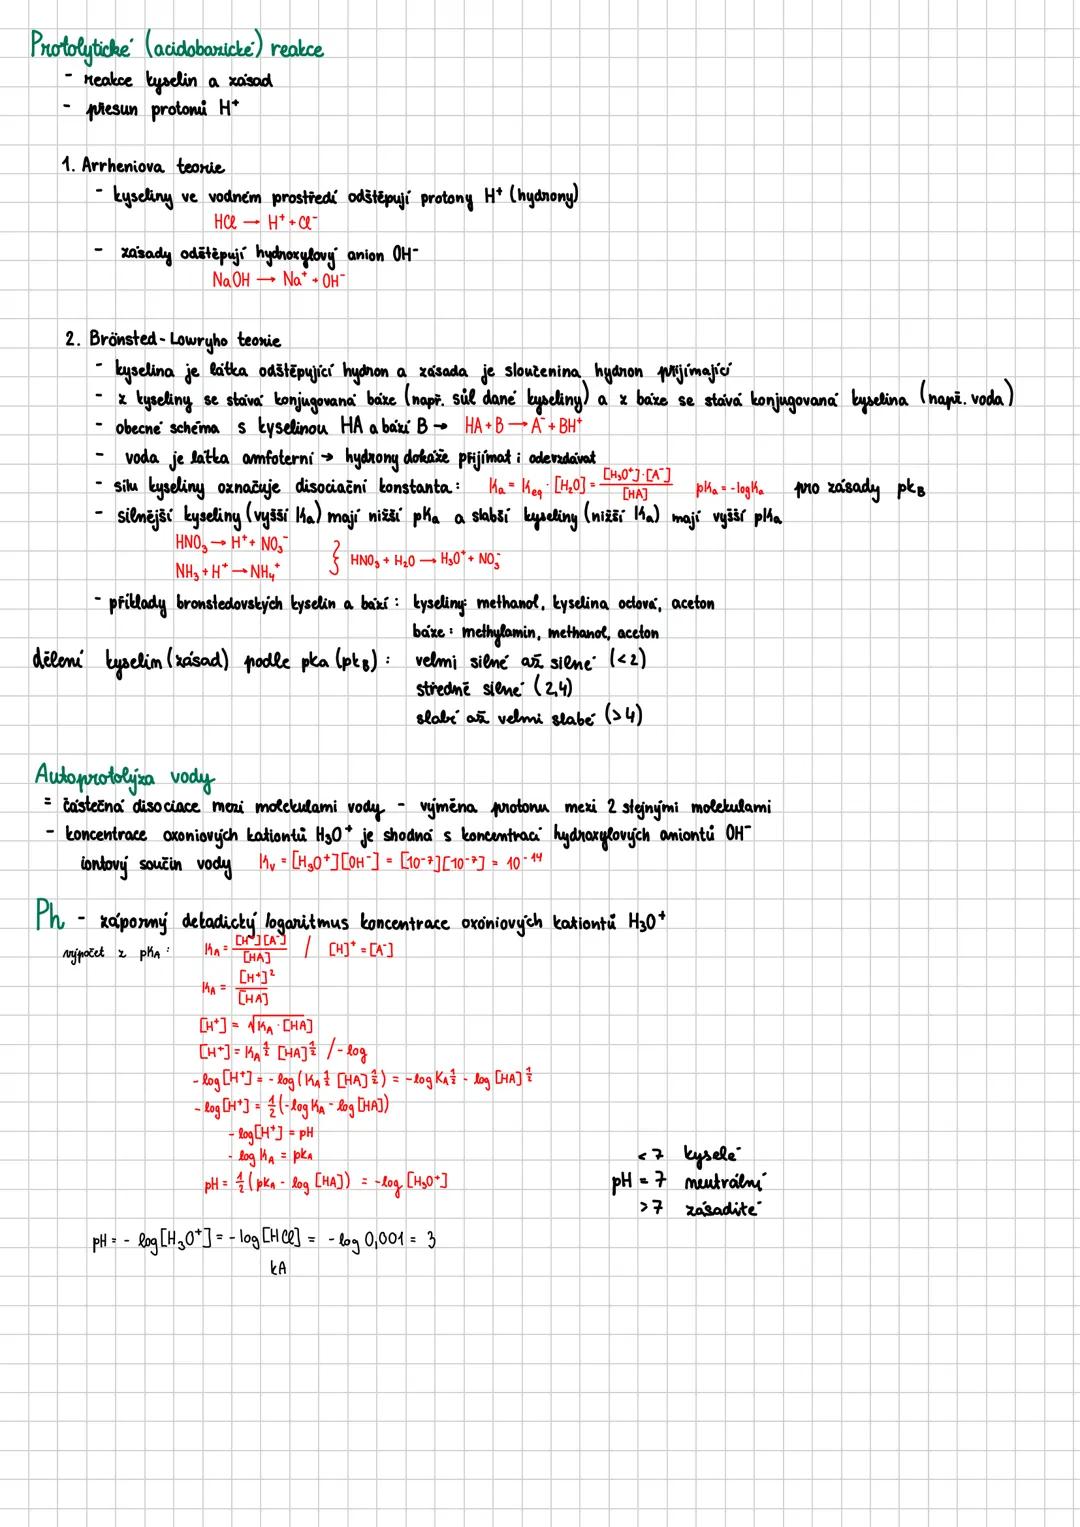 Protolytické (acidobazické) reakce
- reakce kyselin a zásad
- přesun protonů H⁺
1. Arrheniova teorie
- kyseliny ve vodném prostředí odštěpují protony H⁺ (hydrony)
HCl → H⁺ + Cl⁻
- zásady odštěpují hydroxylový anion OH⁻
NaOH → Na⁺ + OH⁻
2. Brönsted - Lowryho teorie
- kyselina je látka odštěpující hydron a zásada je sloučenina hydron přijímající
- z kyseliny se stává konjugovaná báze (např. sůl dané kyseliny) a z báze se stává konjugovaná kyselina (např. voda)
- obecné schéma s kyselinou HA a bází B → HA + B → A⁻ + BH⁺
- voda je látka amfoterní → hydrony dokáže přijímat i odevzdávat
- sílu kyseliny označuje disociační konstanta: Ka = Keq · [H₂O] = [H₃O⁺]·[A⁻] / [HA] pKa = -logKa pro zásady pkB
- silnější kyseliny (vyšší Ka) mají nižší pKa a slabší kyseliny (nižší Ka) mají vyšší pKa
HNO₃ → H⁺ + NO₃⁻
NH₃ + H⁺ → NH₄⁺ } HNO₃ + H₂O → H₃O⁺ + NO₃⁻
- příklady bronstedovských kyselin a bází: kyseliny: methanol, kyselina octová, aceton
báze: methylamin, methanol, aceton
dělení kyselin (zásad) podle pka (pkB): velmi silné až silné (<2)
středně silné (2,4)
slabé až velmi slabé (>4)
Autoprotolýza vody
= částečná disociace mezi molekulami vody - výměna protonu mezi 2 stejnými molekulami
- koncentrace oxoniových kationtů H₃O⁺ je shodná s koncentrací hydroxylových aniontů OH⁻
iontový součin vody Kv = [H₃O⁺][OH⁻] = [10⁻⁷][10⁻⁷] = 10⁻¹⁴
Ph - záporný dekadický logaritmus koncentrace oxoniových kationtů H₃O⁺
výpočet z pKA: KA = [H⁺][A⁻] / [HA] / [H]⁺ = [A⁻]
KA = [H⁺]² / [HA]
[H⁺] = √KA · [HA]
[H⁺] = KA^½ [HA]^½ / -log
- log [H⁺] = - log (KA^½ [HA]^½) = - log KA^½ - log [HA]^½
- log [H⁺] = ½ (- log KA - log [HA])
- log [H⁺] = pH
- log KA = pkA
pH = ½ (pKA - log [HA]) = -log [H₃O⁺]
< 7 kyselé
pH = 7 neutrální
> 7 zásadité
pH = - log [H₃O⁺] = - log [HCl] = - log 0,001 = 3
kA